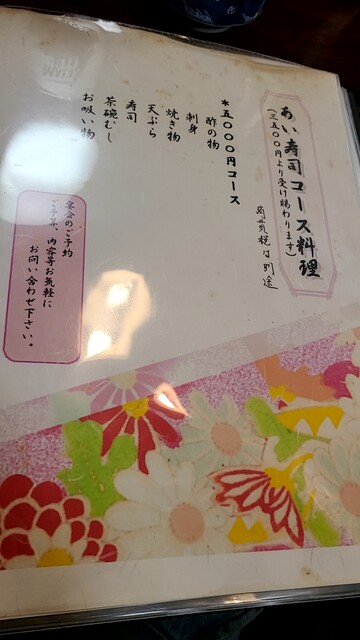 あい寿司コース料理
(三五〇〇円より受け賜わります)
消費税は別途
*五〇〇〇円コース
酢の物
刺身
焼き物
天ぷら
寿司
茶碗むし
お吸い物
宴会のご予約
ご予算、内容等お気軽に
お問い合わせ下さい。